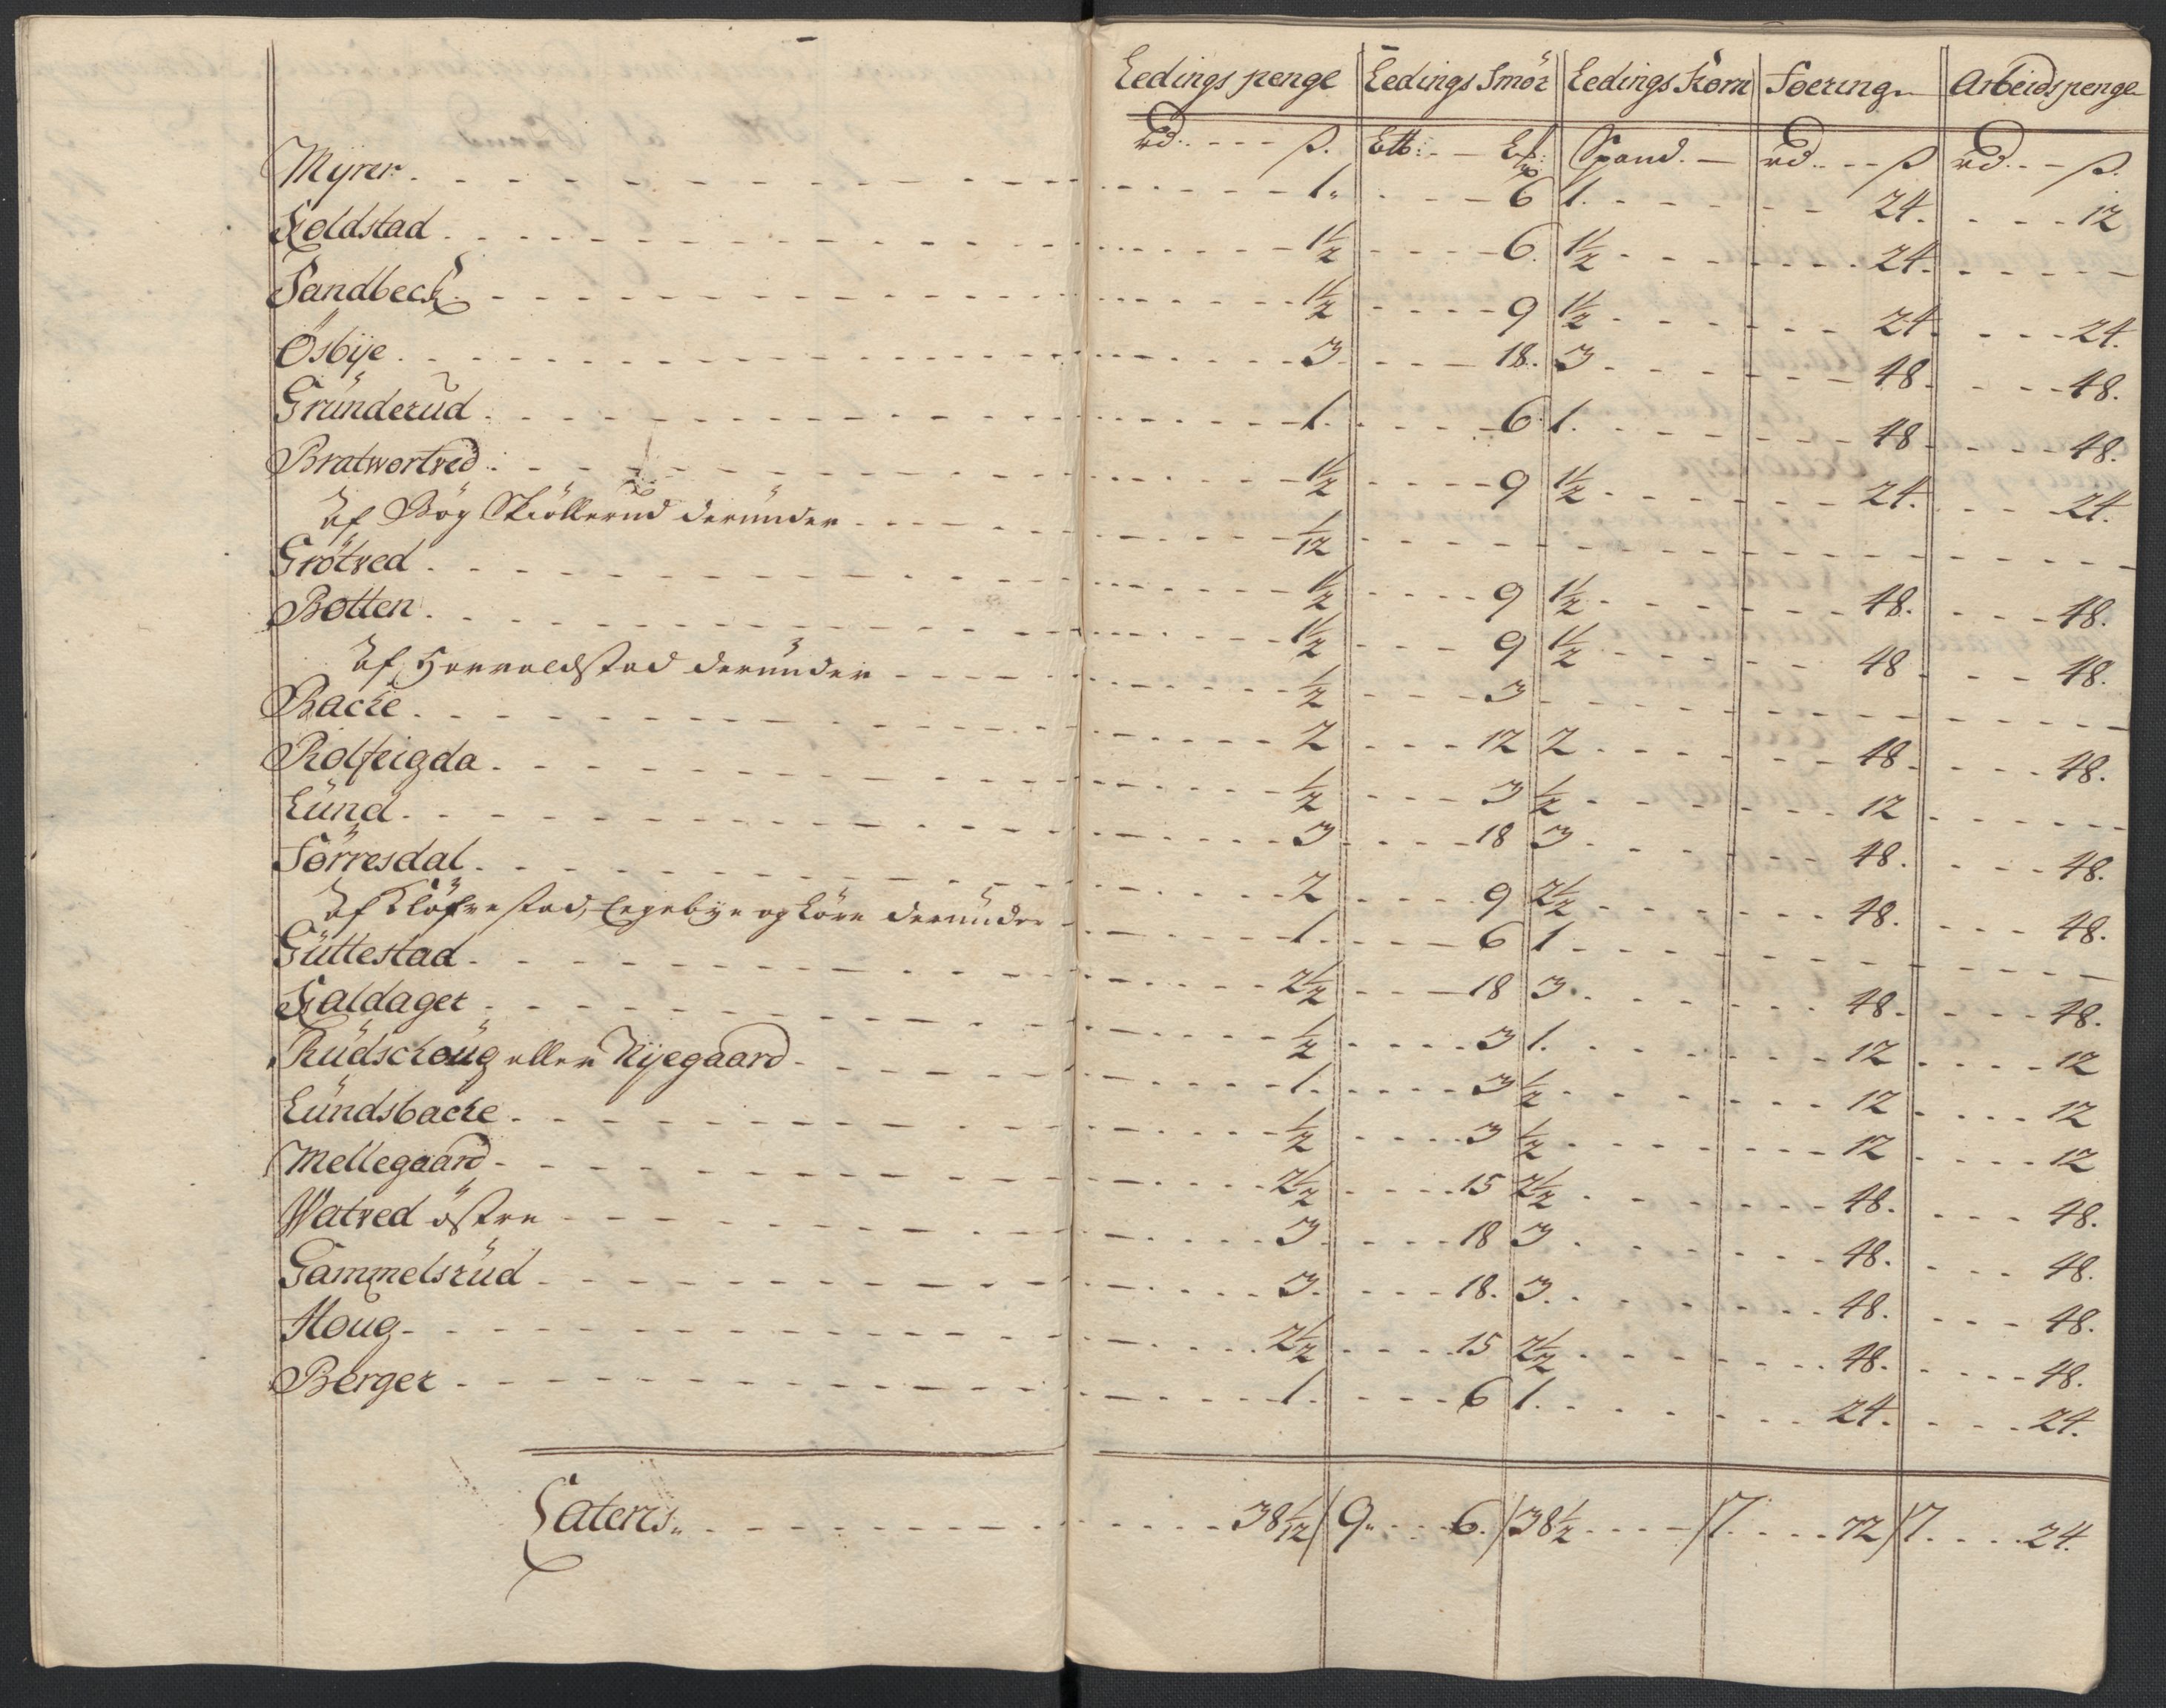 Ledings penge Ledings Smör Ledings Korn Foering Arbeidspenge
rd. ß. Spand. rd. ß rd. ß.
Myrer. 1. 6 1. 24. 12
Koldstad. 1½ 6. 1½ 24.
Sandbeck. 1½ 9 1½ 24. 24.
Ösbÿe. 3. 18. 3. 48. 48.
Gründerud. 1. 6. 1. 48 48.
Bratwortved. 1½ 9 1½ 24. 24.
af Böy Skiöllerud derunder 1/12
Grötved. 1½ 9 1½ 48. 48.
Botten. 1½ 9 1½ 48 48.
af Harraldstad derunder ½ 3
Backe. 2 12 2. 48. 48.
Rolfeigda. ½ 3 ½ 12
Lünd. 3. 18 3. 48. 48.
Törresdal. 2 9 2½ 48. 48.
af Klöfvestad, Egebye og Löre derunder 1. 6 1
Güttestad. 2½ 18 3. 48. 48.
Kaldager. ½ 3 1. 12 12
Rüdschoug eller Nÿegaard 1. 3 ½ 12 12
Lündsbacke. ½ 3 ½ 12 12
Mellegaard. 2½ 15 2½ 48. 48.
Watved östre 3. 18 3. 48. 48.
Gammelsrüd. 3. 18. 3. 48. 48.
Houg. 2½ 15 2½ 48. 48.
Berger. 1. 6 1. 24. 24.
Laterés. 38 1/12 / 9. 6. / 38½ / 17. 72 / 17. 24.